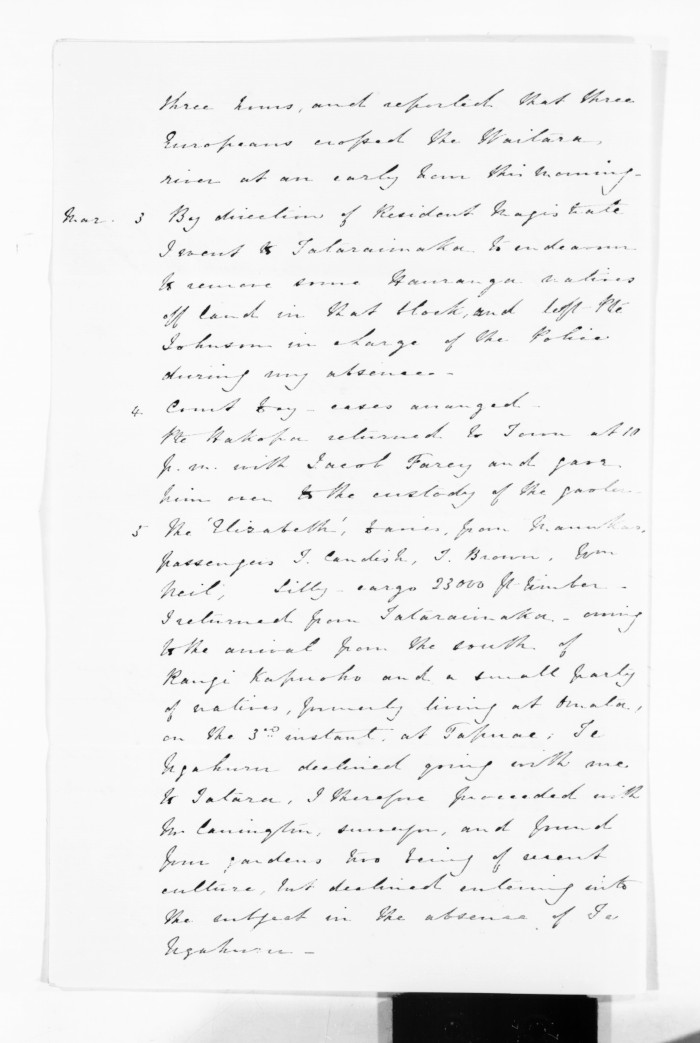 three hours, and reported that three
Europeans crossed the Waitara
river at an early hour this morning -
Mar. 3 By direction of Resident Magistrate
I went to Tataraimaka to endeavour
to remove some Hauranga natives
off land in that block, and left Pte
Johnson in charge of the Police
during my absence. -
4. Court Day - cases arranged -
Pte Hakopa returned to Town at 10
p.m. with Jacob Farey and gave
him over to the custody of the gaoler -
5 The 'Elizabeth', Davies, from Manukau,
passengers J. Candish, J. Brown, Wm
Neil, Lilly - cargo 23000 ft timber -
I returned from Tataraimaka - owing
to the arrival from the south of
Rangi Kapuoho and a small party
of natives, formerly living at Omata,
on the 3rd instant, at Tapuae; Te
Ngahuru declined going with me
to Tatara, I therefore proceeded with
Mr Carrington, surveyor, and found
four gardens two being of recent
culture, but declined entering into
the subject in the absence of Te
Ngahuru -